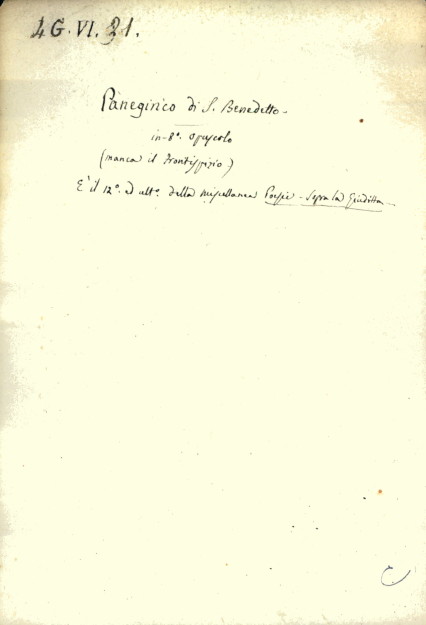 4 G. VI. 21.
Panegirico di S. Benedetto.
in-8º. opuscolo
(manca il Frontispizio)
E' il 12º. ed ultº. della miscellanea Poesie - Sopra la Giuditta